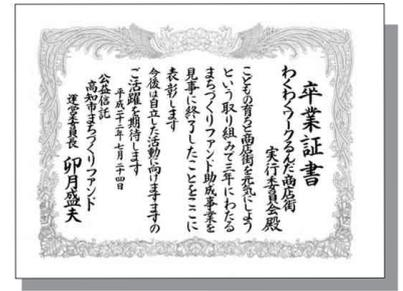 卒業証書
わくわくワークるんだ商店街
実行委員会殿
こどもの育ちと商店街を元気にしよう
という取り組みで三年にわたる
まちづくりファンド助成事業を
見事に終了したことをここに
表彰します
今後は自立した活動に向けますますの
ご活躍を期待します
平成二十二年七月二十四日
公益信託
高知市まちづくりファンド
運営委員長 卯月盛夫